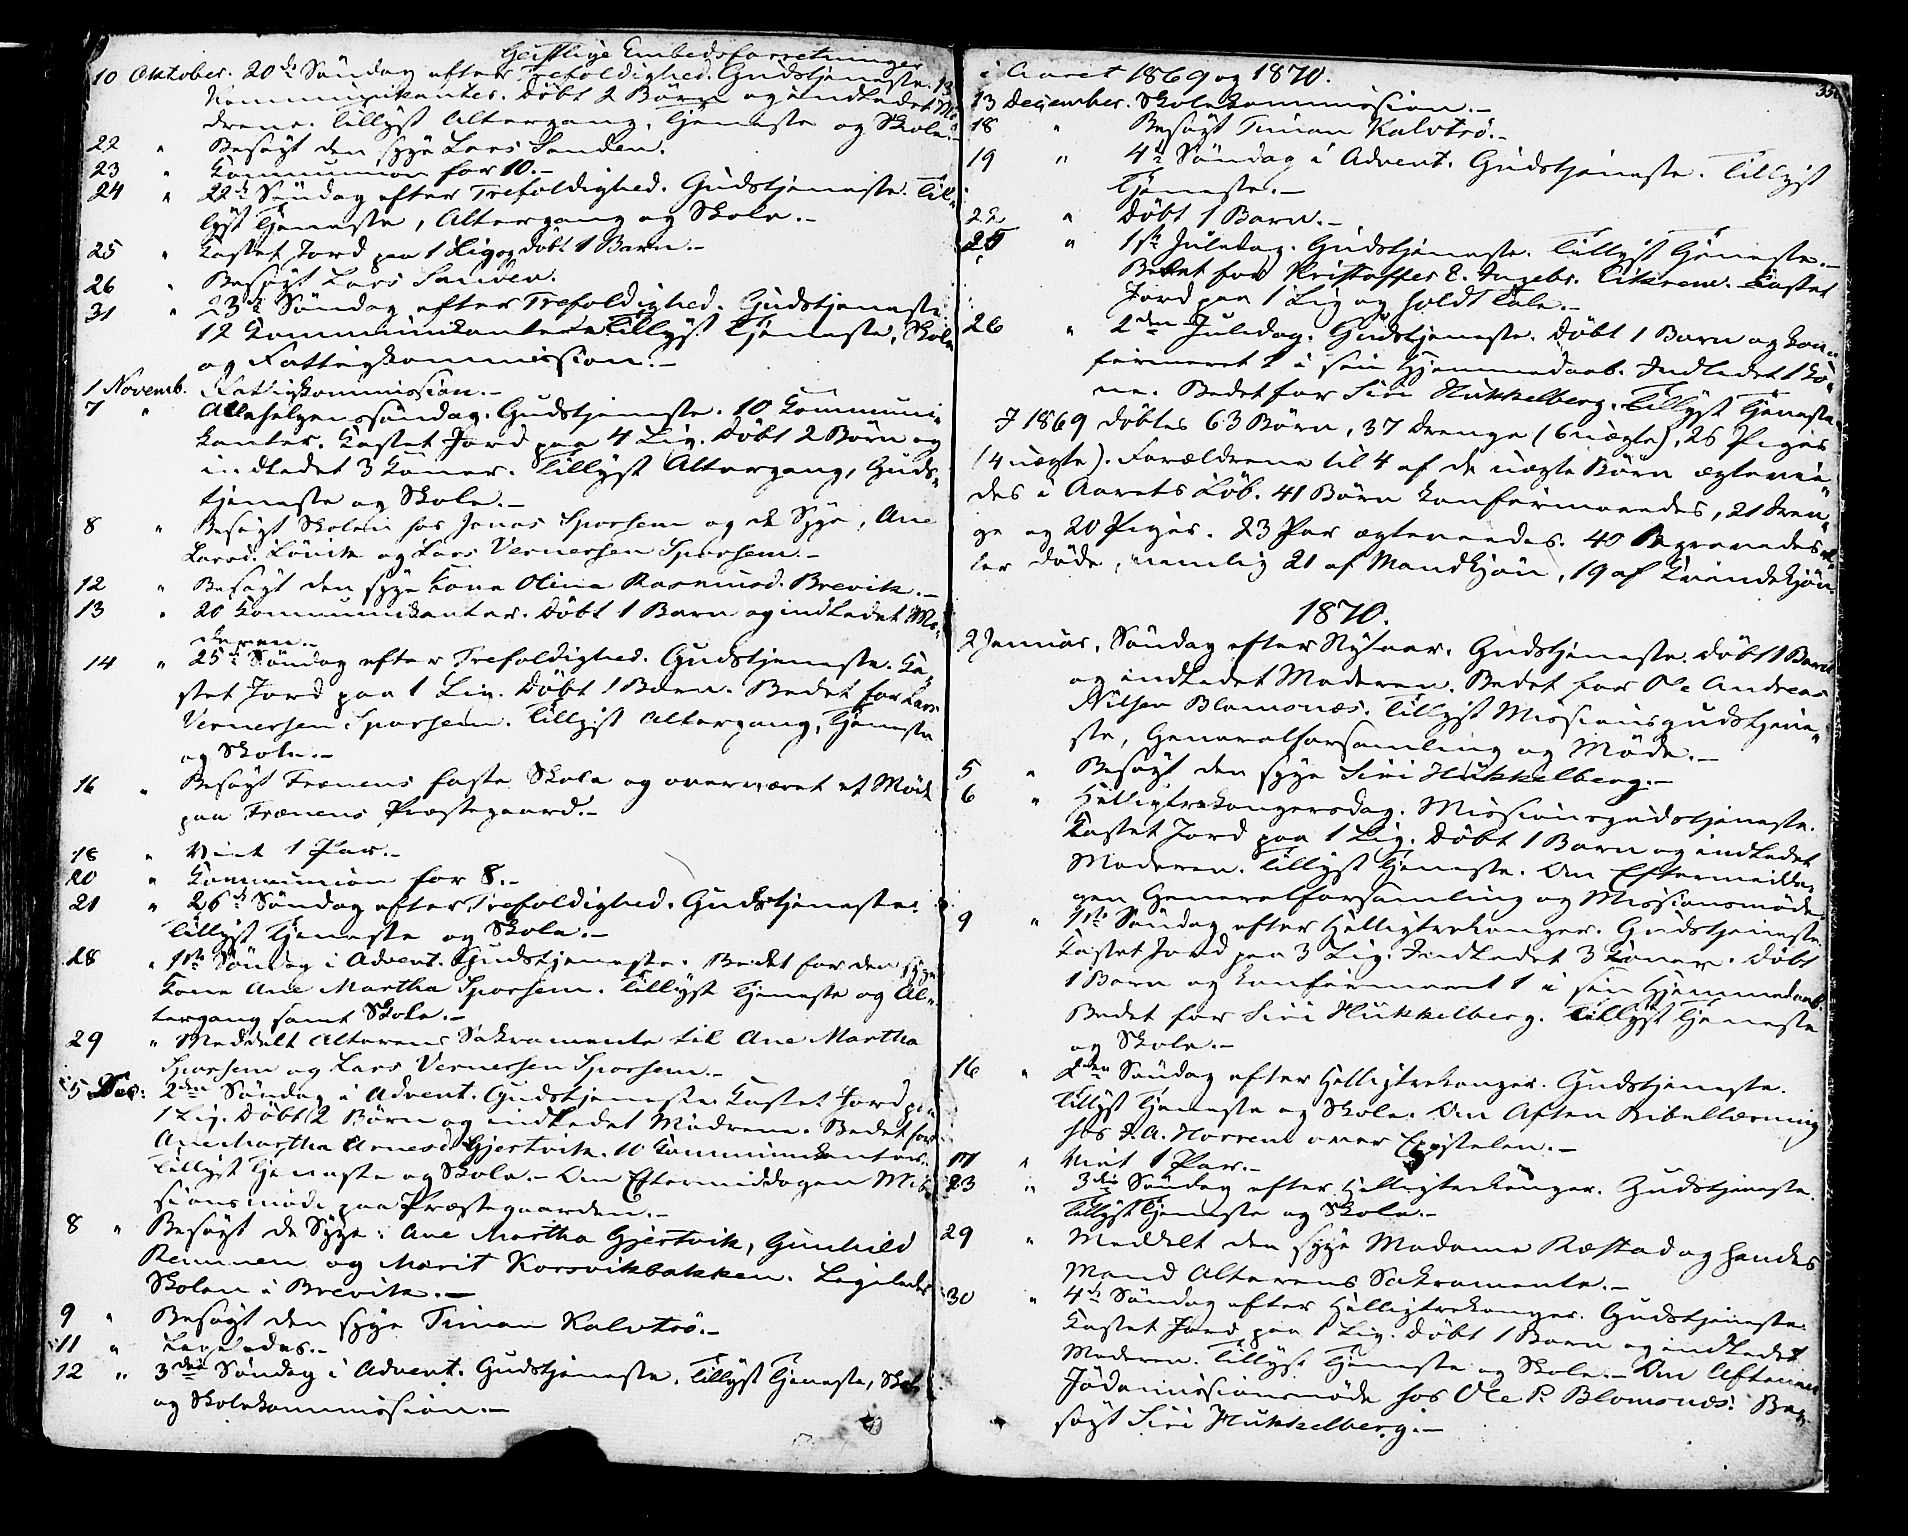 Geistlige Embedsforretninger
10 Oktober. 20de Söndag efter Trefoldighed. Gudstjeneste. 13
Kommunikanter. Döbt 2 Börn og indledet Mö-
drene. Tillyst Altergang, Tjeneste og Skole.-
22 " Besögt den syge Lars Sanden.
23 " Kommunion for 10.-
24 " 22de Söndag efter Trefoldighed. Gudstjeneste. Til-
lyst Tjeneste, Altergang og Skole.-
25 " Kastet Jord paa 1 Lig og Döbt 1 Barn.-
26 " Besögt Lars Sanden.
31 " 23de Söndag efter Trefoldighed. Gudstjeneste.
12 Kommunikanter. Tillyst Tjeneste, Skole
og Fattigkommission.-
1 Novemb. Fattigkommission.-
7 " Allehelgenssöndag. Gudstjeneste. 10 Kommuni-
kanter. Kastet Jord paa 4 Lig. Döbt 2 Börn og
indledet 3 Koner. Tillyst Altergang, Guds-
tjeneste og Skole.-
8 " Besögt Skolen hos Jonas Sporsem og de Syge, Ane
Larsd. Lövik og Lars Vernersen Sporsem.-
12 " Besögt den syge Kone Olina Rasmusd. Brevik.-
13 " 20 Kommunikanter. Döbt 1 Barn og indledet Mo-
deren.-
14 " 25de Söndag efter Trefoldighed. Gudstjeneste. Ka-
stet Jord paa 1 Lig. Döbt 1 Barn. Bedet for Lars
Vernersen Sporsem. Tillyst Altergang, Tjeneste
og Skole.-
16 " Besögt Frænens faste Skole og overværet et Möde
paa Frænens Præstegaard.-
18 " Viet 1 Par.-
20 " Kommunion for 8.-
21 " 26de Söndag efter Trefoldighed. Gudstjeneste.
Tillyst Tjeneste og Skole.-
28 " 1ste Söndag i Advent. Gudstjeneste. Bedet for den syge
Kone Ane Martha Sporsem. Tillyst Tjeneste og Al-
tergang samt Skole.-
29 " Meddelt Alterens Sakramente til Ane Martha
Sporsem og Lars Vernersen Sporsem.-
5 Dec: 2den Söndag i Advent. Gudstjeneste. Kastet Jord paa
1 Lig. Döbt 2 Börn og indledet Mödrene. Bedet for
Anemartha Arnesd. Gjertvik. 10 Kommunikanter.
Tillyst Tjeneste og Skole.- Om Eftermiddagen Mis-
sionsmöde paa Præstegaarden.-
8 " Besögt de Syge: Ane Martha Gjertvik, Gunhild
Remmen og Marit Korsvikbakken. Ligeledes
Skolen i Brevik.-
9 " Besögt den syge Timan Kalvtrö.-
11 " Ligeledes.-
12 " 3die Söndag i Advent. Gudstjeneste. Tillyst Tjeneste, Skole
og Skolekommission.-
i Aaret 1869 og 1870.
13 December. Skolekommission.-
18 " Besögt Timan Kalvtrö.-
19 " 4de Söndag i Advent. Gudstjeneste. Tillyst
Tjeneste.-
22 " Döbt 1 Barn.-
25 " 1ste Juledag. Gudstjeneste. Tillyst Tjeneste.-
Bedet for Kristoffer E. Ingebr. Kastet
Jord paa 1 Lig og holdt Tale.-
26 " 2den Juledag. Gudstjeneste. Döbt 1 Barn og kon-
firmeret 1 i sin Hjemmedaab. Indledet 1 Ko-
ne. Bedet for Siri Hukkelberg. Tillyst Tjeneste.
I 1869 döbtes 63 Börn, 37 Drenge (6 uægte), 26 Piger
(4 uægte). Forældrene til 4 af de uægte Börn ægtevie-
des i Aarets Löb. 41 Börn konfirmeredes, 21 Dren-
ge og 20 Piger. 23 Par ægteviedes. 40 Begravedes el-
ler döde, nemlig 21 af Mandkjön, 19 af Kvindekjön.
1870.
2 Januar. Söndag efter Nytaar. Gudstjeneste. Döbt 1 Barn
og indledet Moderen. Bedet for Ole Andreas
Nilsen Blomsnæs. Tillyst Missionsgudstjene-
ste, Generalforsamling og Möde.-
5 " Besögt den syge Siri Hukkelberg.-
6 " Helligtrekongersdag. Missionsgudstjeneste.
Kastet Jord paa 1 Lig. Döbt 1 Barn og indledet
Moderen. Tillyst Tjeneste. Om Eftermidda-
gen Generalforsamling og Missionsmöde.
9 " 1ste Söndag efter Helligtrekonger. Gudstjeneste.
Kastet Jord paa 3 Lig. Indledet 3 Koner. Döbt
1 Barn og konfirmeret 1 i sin Hjemmedaab.
Bedet for Siri Hukkelberg. Tillyst Tjeneste
og Skole.-
16 " 2den Söndag efter Helligtrekonger. Gudstjeneste.
Tillyst Tjeneste og Skole. Om Aften Bibellæsning
hos J. A. Horrem over Epistelen.-
17 " Viet 1 Par.-
23 " 3die Söndag efter Helligtrekonger. Gudstjeneste.
Tillyst Tjeneste og Skole.-
29 " Meddelt den syge Madame Ræstad og hendes
Mand Alterens Sakramente.-
30 " 4de Söndag efter Helligtrekonger. Gudstjeneste.
Kastet Jord paa 1 Lig. Döbt 1 Barn og indledet
Moderen. Tillyst Tjeneste og Skole.- Om Aftenen
Jödemissionsmöde hos Ole P. Blomsnæs. Be-
sögt Siri Hukkelberg.-